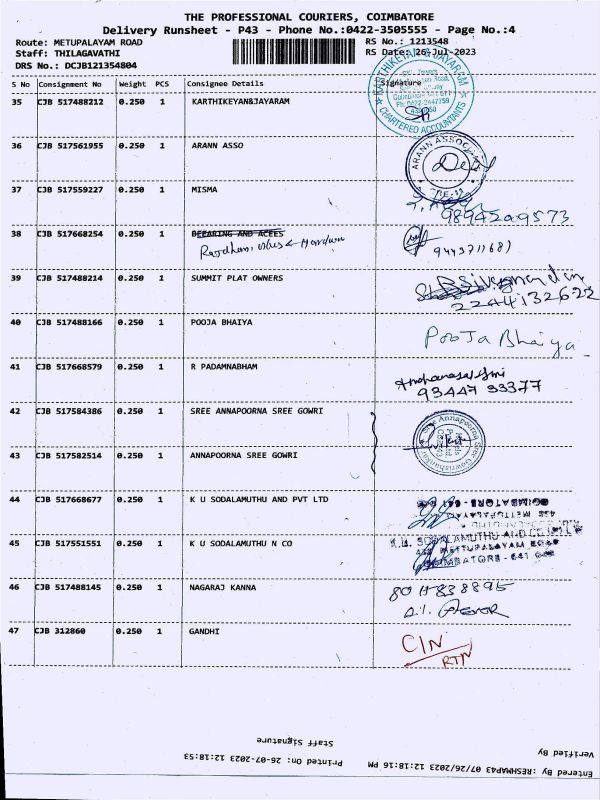 THE PROFESSIONAL COURIERS, COIMBATORE
Delivery Runsheet - P43 - Phone No.:0422-3505555 - Page No.:4
Route: METUPALAYAM ROAD RS No.: 1213548
Staff: THILAGAVATHI RS Date: 26-Jul-2023
DRS No.: DCJB121354804
S No Consignment No Weight PCS Consignee Details Signature
35 CJB 517488212 0.250 1 KARTHIKEYAN&JAYARAM
KARTHIKEYAN & JAYARAM
CHARTERED ACCOUNTANTS
36 CJB 517561955 0.250 1 ARANN ASSO
ARANN ASSOCIATES
37 CJB 517559227 0.250 1 MISMA
9894209573
38 CJB 517668254 0.250 1 BEEARING AND ACEES
9443711681
39 CJB 517488214 0.250 1 SUMMIT PLAT OWNERS
2244132622
40 CJB 517488166 0.250 1 POOJA BHAIYA
Pooja Bhaiya
41 CJB 517668579 0.250 1 R PADAMNABHAM
93447 33377
42 CJB 517584386 0.250 1 SREE ANNAPOORNA SREE GOWRI
43 CJB 517582514 0.250 1 ANNAPOORNA SREE GOWRI
44 CJB 517668677 0.250 1 K U SODALAMUTHU AND PVT LTD
COIMBATORE - 641
45 CJB 517551551 0.250 1 K U SODALAMUTHU N CO
K.U. SODALAMUTHU AND CO
METTUPALAYAM ROAD
COIMBATORE - 641
46 CJB 517488145 0.250 1 NAGARAJ KANNA
47 CJB 312860 0.250 1 GANDHI
C/N
RTN
Staff Signature
Verified By
Printed On: 26-07-2023 12:18:53
Entered By :RESHMAP43 07/26/2023 12:18:16 PM